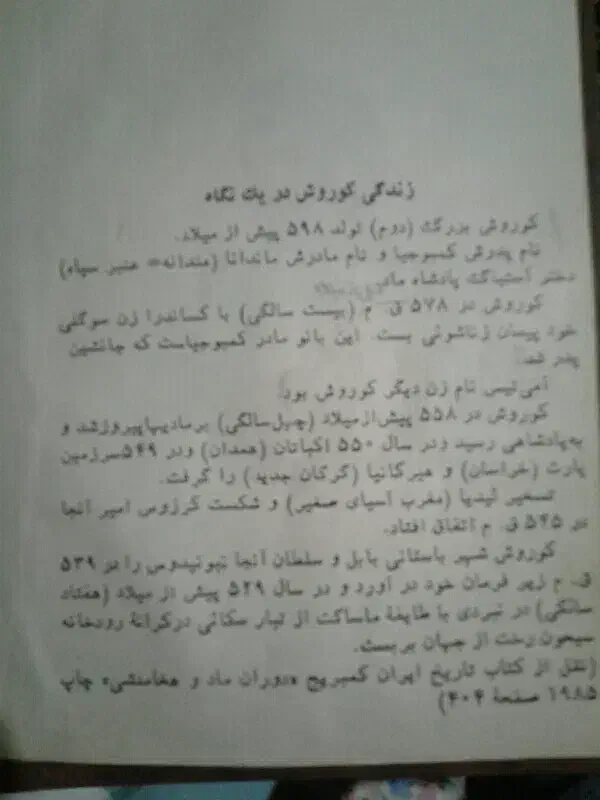 زندگی کوروش در یک نگاه
کوروش بزرگ (دوم) تولد ۵۹۸ پیش از میلاد.
نام پدرش کمبوجیا و نام مادرش ماندانا (مندانه= عنبر سیاه)
دختر آستیاگ پادشاه ماد
کوروش در ۵۷۸ ق. م (بیست سالگی) با کساندرا زن سوگلی
خود پیمان زناشوئی بست. این بانو مادر کمبوجیاست که جانشین
پدر شد.
آمی‌تیس نام زن دیگر کوروش بود.
کوروش در ۵۵۸ پیش از میلاد (چهل سالگی) بر مادیها پیروز شد و
به پادشاهی رسید و در سال ۵۵۰ اکباتان (همدان) و در ۵۴۹ سرزمین
پارت (خراسان) و هیرکانیا (گرگان جدید) را گرفت.
تسخیر لیدیا (مغرب آسیای صغیر) و شکست کرزوس امیر آنجا
در ۵۴۵ ق. م اتفاق افتاد.
کوروش شهر باستانی بابل و سلطان آنجا نبونیدوس را در ۵۳۹
ق. م زیر فرمان خود در آورد و در سال ۵۲۹ پیش از میلاد (هفتاد
سالگی) در نبردی با طایفهٔ ماساگت از تبار سکائی در کرانهٔ رودخانه
سیحون رخت از جهان بربست.
(نقل از کتاب تاریخ ایران کمبریج «دوران ماد و هخامنشی» چاپ
۱۹۸۵ صفحهٔ ۴۰۴)